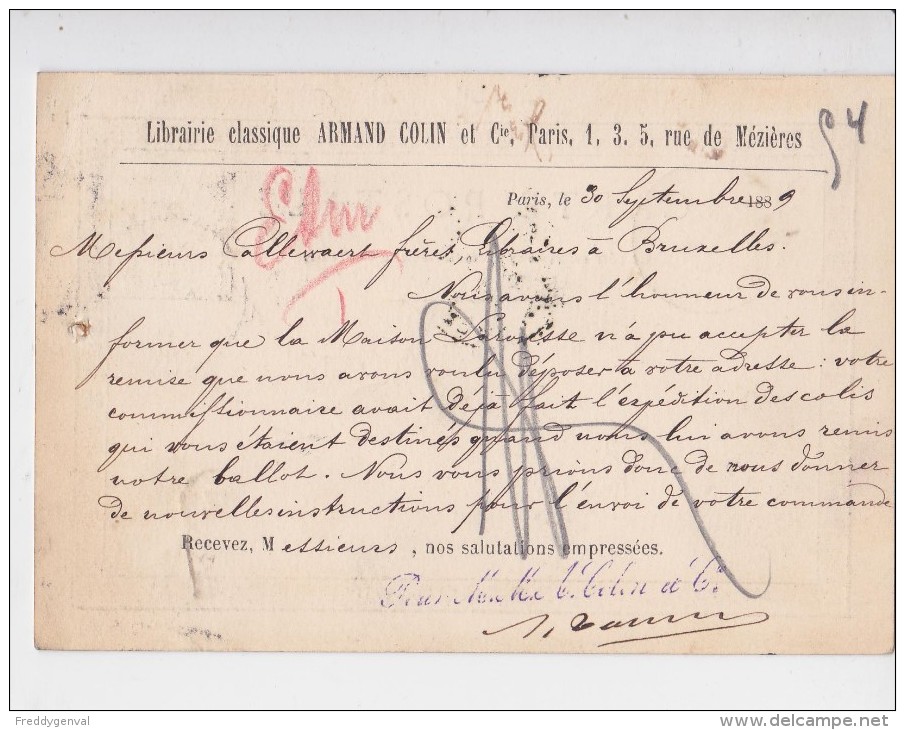 54
Librairie classique ARMAND COLIN et Cie, Paris, 1, 3, 5, rue de Mézières
Paris, le 30 Septembre 1889
Messieurs Callewaert frères, Libraires à Bruxelles.
Nous avons l'honneur de vous in-
former que la Maison Larousse n'a pu accepter la
remise que nous avons voulu déposer à votre adresse : votre
commissionnaire avait déjà fait l'expédition des colis
qui vous étaient destinés quand nous lui avons remis
notre ballot. Nous vous prions donc de nous donner
de nouvelles instructions pour l'envoi de votre commande
Recevez, Messieurs, nos salutations empressées.
Pour MM. A. Colin et Cie
Freddygenval
www.delcampe.net